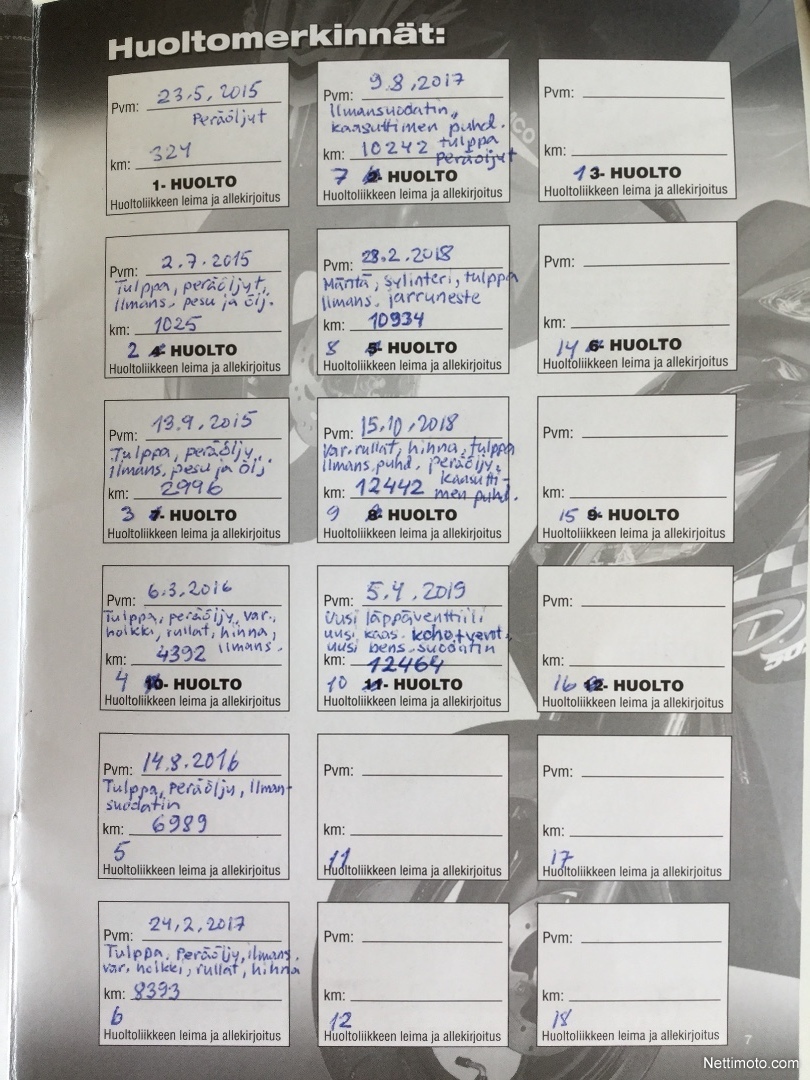 Huoltomerkinnät:
Pvm: 23.5.2015
Peräöljyt
km: 324
1- HUOLTO
Huoltoliikkeen leima ja allekirjoitus
Pvm: 2.7.2015
Tulppa, peräöljyt,
ilmans. pesu ja ölj.
km: 1025
2 HUOLTO
Huoltoliikkeen leima ja allekirjoitus
Pvm: 13.9.2015
Tulppa, peräöljy,
ilmans. pesu ja ölj.
km: 2996
3 7- HUOLTO
Huoltoliikkeen leima ja allekirjoitus
Pvm: 6.3.2016
Tulppa, peräöljy, var.
hoikki, rullat, hinna,
km: 4392 ilmans.
4 10- HUOLTO
Huoltoliikkeen leima ja allekirjoitus
Pvm: 14.8.2016
Tulppa, peräöljy, ilman-
suodatin
km: 6989
5
Huoltoliikkeen leima ja allekirjoitus
Pvm: 24.2.2017
Tulppa, Peräöljy, ilmans.
var. hoikki, rullat, hihna
km: 8393
6
Huoltoliikkeen leima ja allekirjoitus
Pvm: 9.8.2017
Ilmansuodatin,
kaasuttimen puhd.
km: 10242 tulppa
Peräöljyt
7 HUOLTO
Huoltoliikkeen leima ja allekirjoitus
Pvm: 28.2.2018
Mäntä, sylinteri, tulppa
ilmans. jarruneste
km: 10934
8 5- HUOLTO
Huoltoliikkeen leima ja allekirjoitus
Pvm: 15.10.2018
Var.rullat, hihna, tulppa
ilmans.puhd. peräöljy,
km: 12442 kaasutti-
men puhd.
9 8- HUOLTO
Huoltoliikkeen leima ja allekirjoitus
Pvm: 5.4.2019
Uusi läppäventtiili
uusi kaas. koho+vent.
uusi bens. suodatin
km: 12464
10 11- HUOLTO
Huoltoliikkeen leima ja allekirjoitus
Pvm:
km:
11
Huoltoliikkeen leima ja allekirjoitus
Pvm:
km:
12
Huoltoliikkeen leima ja allekirjoitus
Pvm:
km:
13- HUOLTO
Huoltoliikkeen leima ja allekirjoitus
Pvm:
km:
14 6- HUOLTO
Huoltoliikkeen leima ja allekirjoitus
Pvm:
km:
15 9- HUOLTO
Huoltoliikkeen leima ja allekirjoitus
Pvm:
km:
16 12- HUOLTO
Huoltoliikkeen leima ja allekirjoitus
Pvm:
km:
17
Huoltoliikkeen leima ja allekirjoitus
Pvm:
km:
18
Huoltoliikkeen leima ja allekirjoitus
7
Nettimoto.com